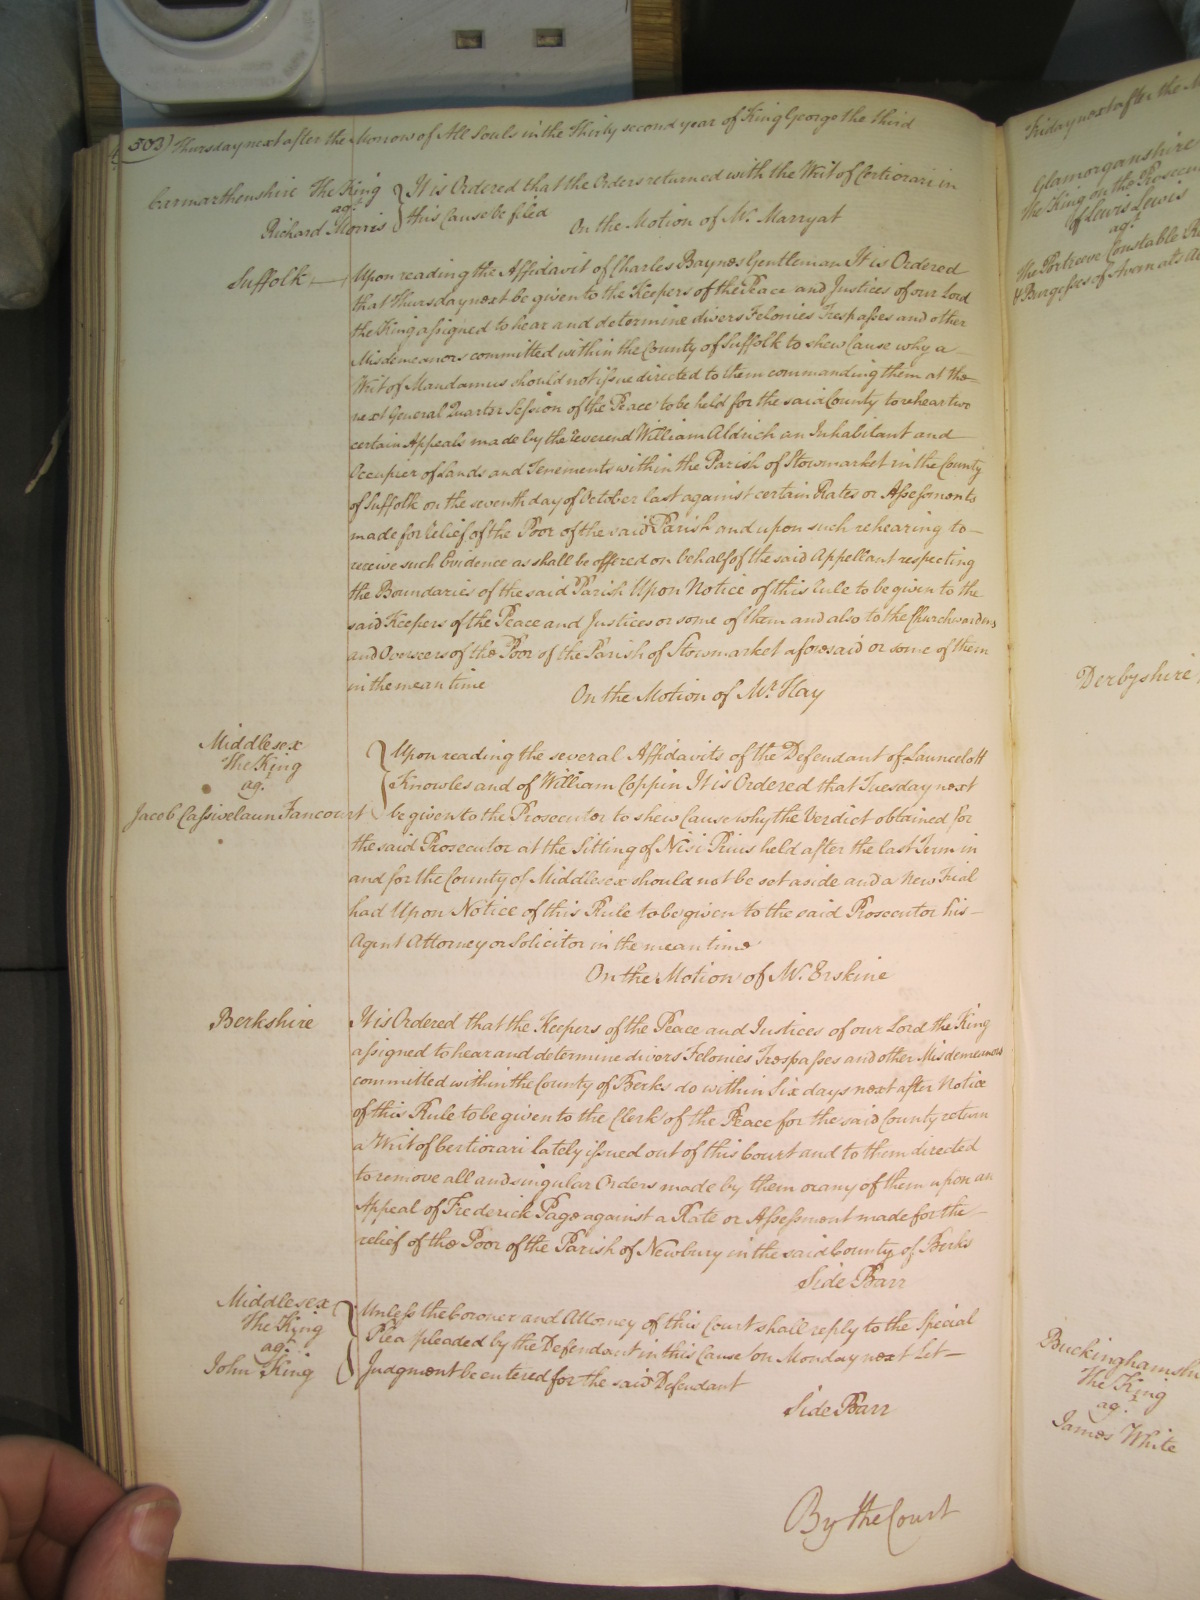 303) Thursday next after the Morrow of All Souls in the Thirty second year of King George the third
Carmarthenshire The King
agt
Richard Morris
It is Ordered that the Orders returned with the Writ of Certiorari in
this Cause be filed
On the Motion of Mr. Marryat
Suffolk
Upon reading the Affidavit of Charles Baynes Gentleman It is Ordered
that Thursday next be given to the Keepers of the Peace and Justices of our Lord
the King assigned to hear and determine divers Felonies Trespasses and other
Misdemeanors committed within the County of Suffolk to shew Cause why a
Writ of Mandamus should not issue directed to them commanding them at the
next General Quarter Session of the Peace to be held for the said County to rehear two
certain Appeals made by the Reverend William Aldrich an Inhabitant and
Occupier of Lands and Tenements within the Parish of Stowmarket in the County
of Suffolk on the seventh day of October last against certain Rates or Assessments
made for Relief of the Poor of the said Parish and upon such rehearing to
receive such Evidence as shall be offered on behalf of the said Appellant respecting
the Boundaries of the said Parish Upon Notice of this Rule to be given to the
said Keepers of the Peace and Justices or some of them and also to the Churchwardens
and Overseers of the Poor of the Parish of Stowmarket aforesaid or some of them
in the mean time
On the Motion of Mr. Hay
Middlesex
The King
agt
Jacob Cassivelaun Fancourt
Upon reading the several Affidavits of the Defendant of Launcelott
Knowles and of William Coppin It is Ordered that Tuesday next
be given to the Prosecutor to shew Cause why the Verdict obtained for
the said Prosecutor at the Sitting of Nisi Prius held after the last Term in
and for the County of Middlesex should not be set aside and a New Trial
had Upon Notice of this Rule to be given to the said Prosecutor his
Agent Attorney or Solicitor in the mean time
On the Motion of Mr. Erskine
Berkshire
It is Ordered that the Keepers of the Peace and Justices of our Lord the King
assigned to hear and determine divers Felonies Trespasses and other Misdemeanors
committed within the County of Berks do within Six days next after Notice
of this Rule to be given to the Clerk of the Peace for the said County return
a Writ of Certiorari lately issued out of this Court and to them directed
to remove all and singular Orders made by them or any of them upon an
Appeal of Frederick Page against a Rate or Assessment made for the
relief of the Poor of the Parish of Newbury in the said County of Berks
Side Barr
Middlesex
The King
agt
John King
Unless the Coroner and Attorney of this Court shall reply to the Special
Plea pleaded by the Defendant in this Cause on Monday next Let
Judgment be entered for the said Defendant
Side Barr
By the Court
Friday next after the
Glamorganshire
The King on the Prosecu
of Lewis Lewis
agt
The Portreeve Constable
& Burgesses of Avan als
Derbyshire
Buckinghamshi
The King
agt
James White